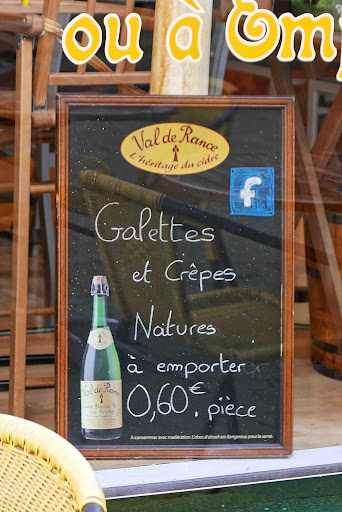 ou à Emp
Val de Rance
L'héritage du cidre
f
Galettes
et Crêpes
Natures
à emporter
0,60€ pièce
Val de Rance
A consommer avec modération. L'abus d'alcool est dangereux pour la santé.